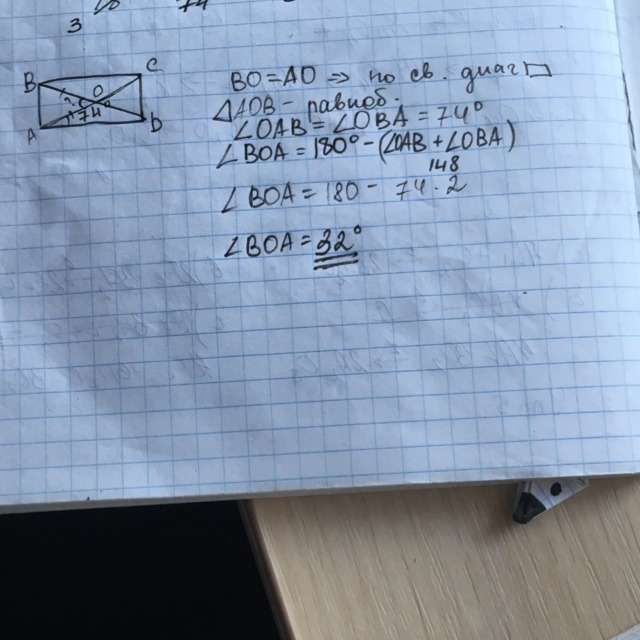 3
74
B
C
O
74°
A
D
BO = AO ⇒ по св. диаг ▭
△AOB - равноб.
∠OAB = ∠OBA = 74°
∠BOA = 180° - (∠OAB + ∠OBA)
148
∠BOA = 180 - 74 · 2
∠BOA = 32°